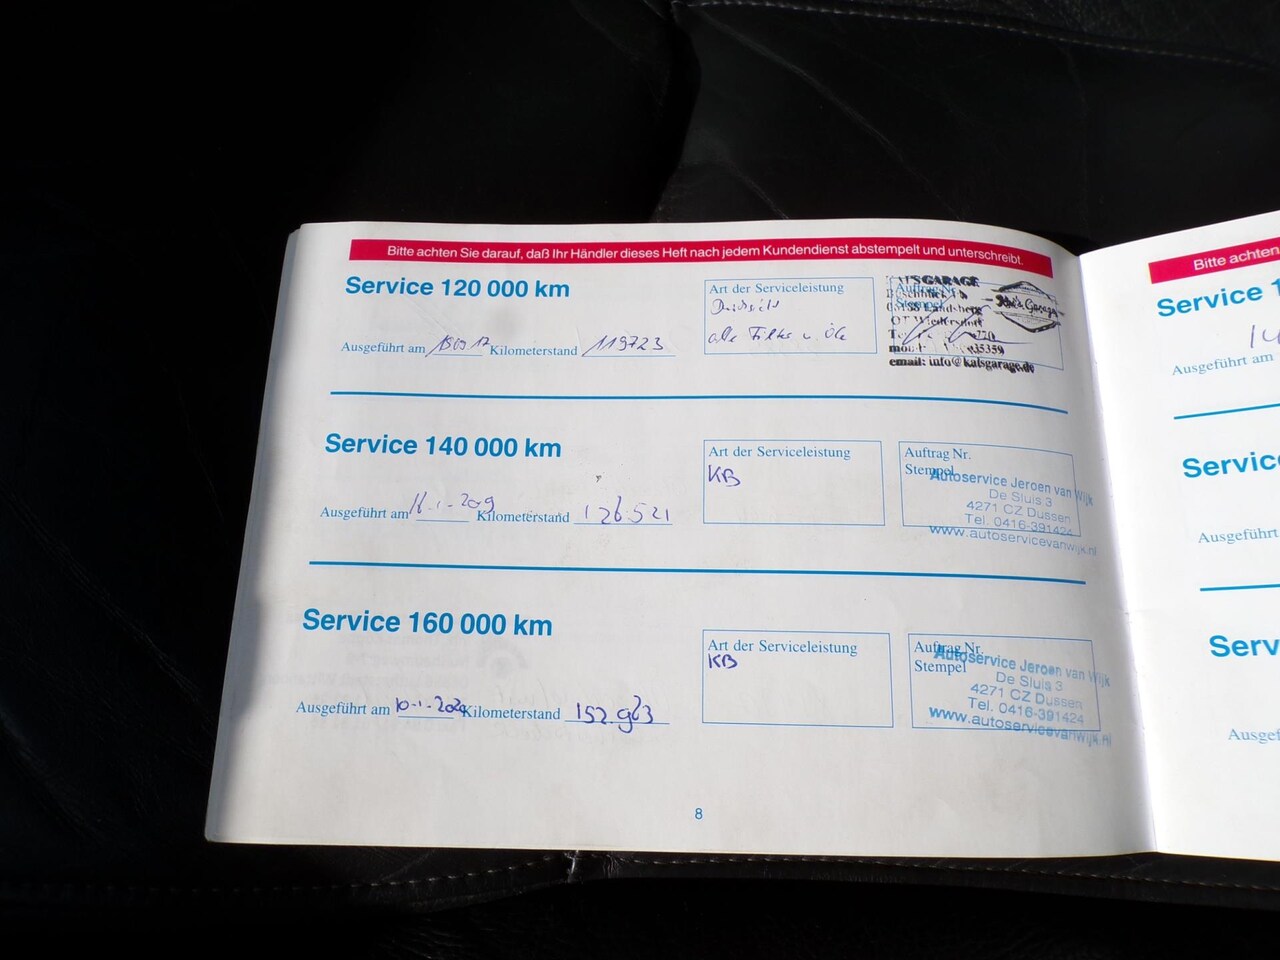 Bitte achten Sie darauf, daß Ihr Händler dieses Heft nach jedem Kundendienst abstempelt und unterschreibt.
Service 120 000 km
Ausgeführt am Kilometerstand 119723
Art der Serviceleistung
alle Filter u. Öle
Auftrag Nr.
Stempel
GARAGE
Landsberg
OT Wiedersdorf
email: info@katsgarage.de
Service 140 000 km
Ausgeführt am Kilometerstand 126521
Art der Serviceleistung
KB
Auftrag Nr.
Stempel
Autoservice Jeroen van Wijk
De Sluis 3
4271 CZ Dussen
Tel. 0416-391424
www.autoservicevanwijk.nl
Service 160 000 km
Ausgeführt am Kilometerstand
Art der Serviceleistung
KB
Auftrag Nr.
Stempel
Autoservice Jeroen van Wijk
De Sluis 3
4271 CZ Dussen
Tel. 0416-391424
www.autoservicevanwijk.nl
8
Bitte achten
Service 1
Ausgeführt am
Servic
Ausgeführt
Serv
Ausgef